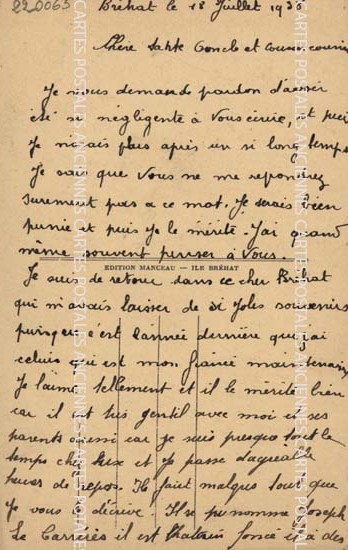 220065
Bréhat le 18 Juillet 1930
Chère tante Oncle et cousin cousine
Je vous demande pardon d'avoir
été si négligente à vous écrire, et puis
Je n'osais plus après un si long temps
Je sais que vous ne me repondrez
surement pas a ce mot. Je serais bien
punie et puis je le mérite. J'ai quand
même souvent penser à vous.
EDITION MANCEAU — ILE BRÉHAT
Je suis de retour dans ce cher Bréhat
qui m'avais laisser de si Jolis souvenirs
puisque c'est l'année dernière que j'ai
celui qui est mon fiancé maintenant
Je l'aime tellement et il le mérite bien
car il est très gentil avec moi et ses
parents aussi car je suis presque tout le
temps chez Eux et Je passe
heures de repos. Il faut malgré tout que
Je vous le décrive! Il se prénomme Joseph
Le Carreres il est Chatain foncé il a des
CARTES POSTALES ANCIENNES